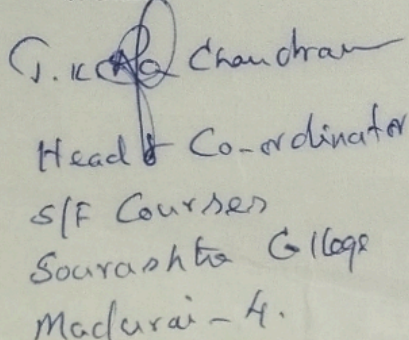 Chandran
Head & Co-ordinator
S/F Courses
Sourashtra College
Madurai - 4.